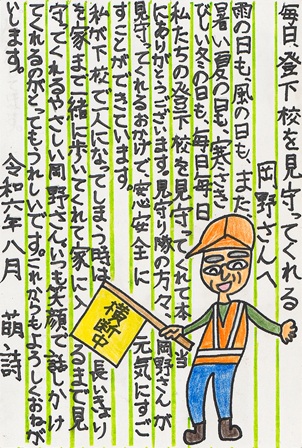 毎日登下校を見守ってくれる
岡野さんへ
雨の日も、風の日も、また
暑い夏の日も、寒さき
びしい冬の日も、毎日毎日
私たちの登下校を見守ってくれて本当
にありがとうございます。見守り隊の方々、岡野さんが
見守ってくれるおかげで、安心安全に元気にすご
すことができています。
私が下校で一人になってしまう時は、長いきょり
を家まで一緒に歩いてくれて、家に入るまで見
守ってくれるやさしい岡野さん。いつも笑顔で話しかけ
てくれるのがとってもうれしいです。これからもよろしくおねが
いします。
令和六年八月 萌詩
横断中